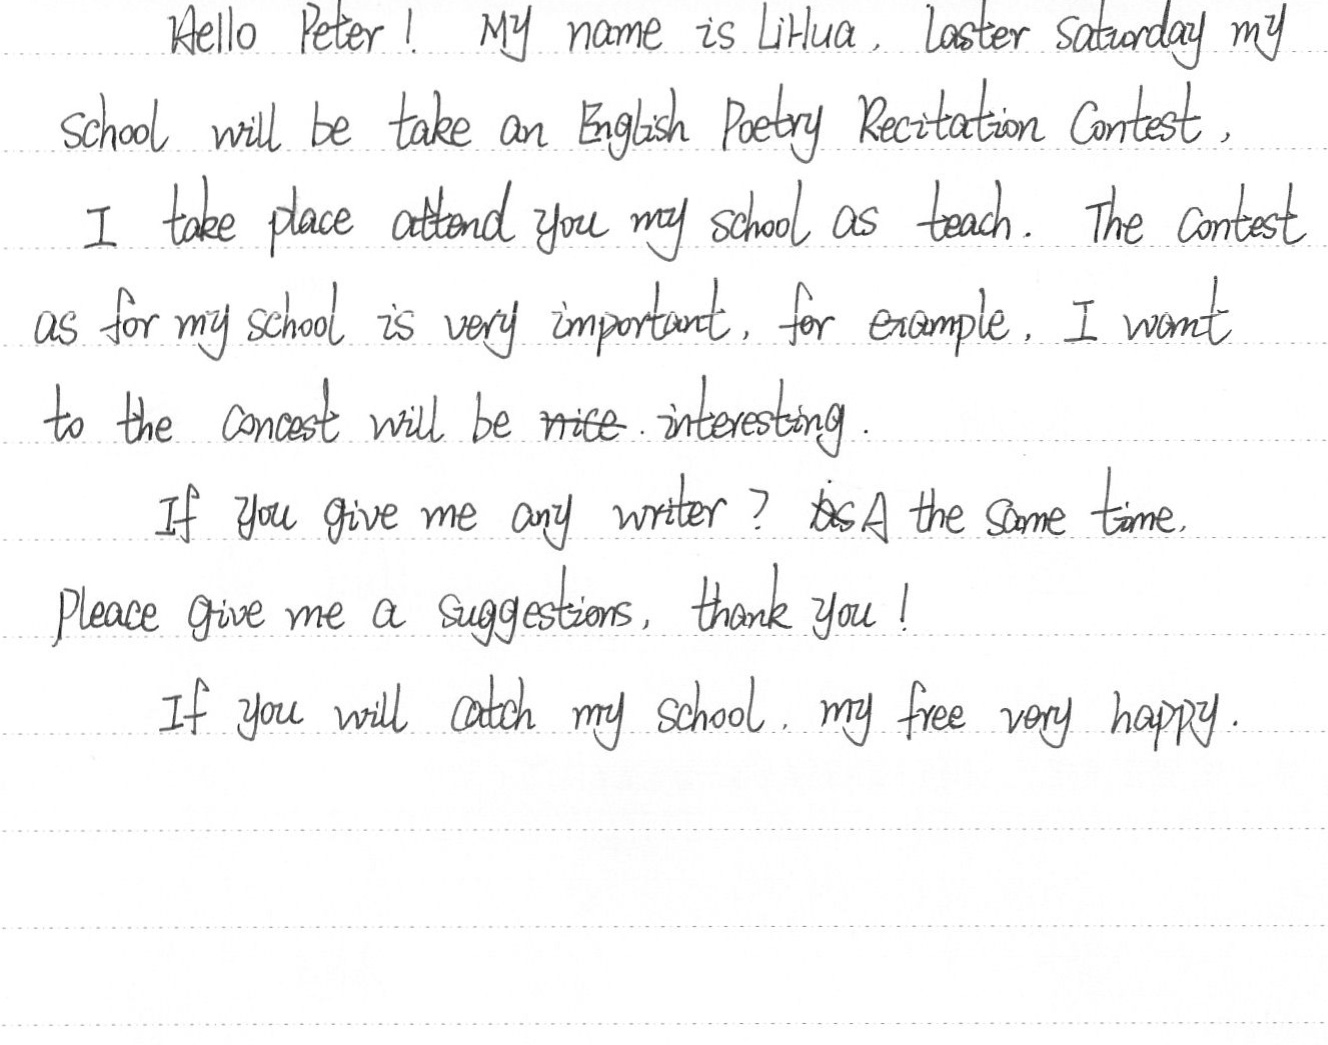 Hello Peter! My name is LiHua, Laster Saturday my
school will be take an English Poetry Recitation Contest,
I take place attend you my school as teach. The contest
as for my school is very important, for example, I want
to the concest will be nice. interesting.
If you give me any writer? A the same time,
Pleace give me a suggestions, thank you!
If you will catch my school, my free very happy.